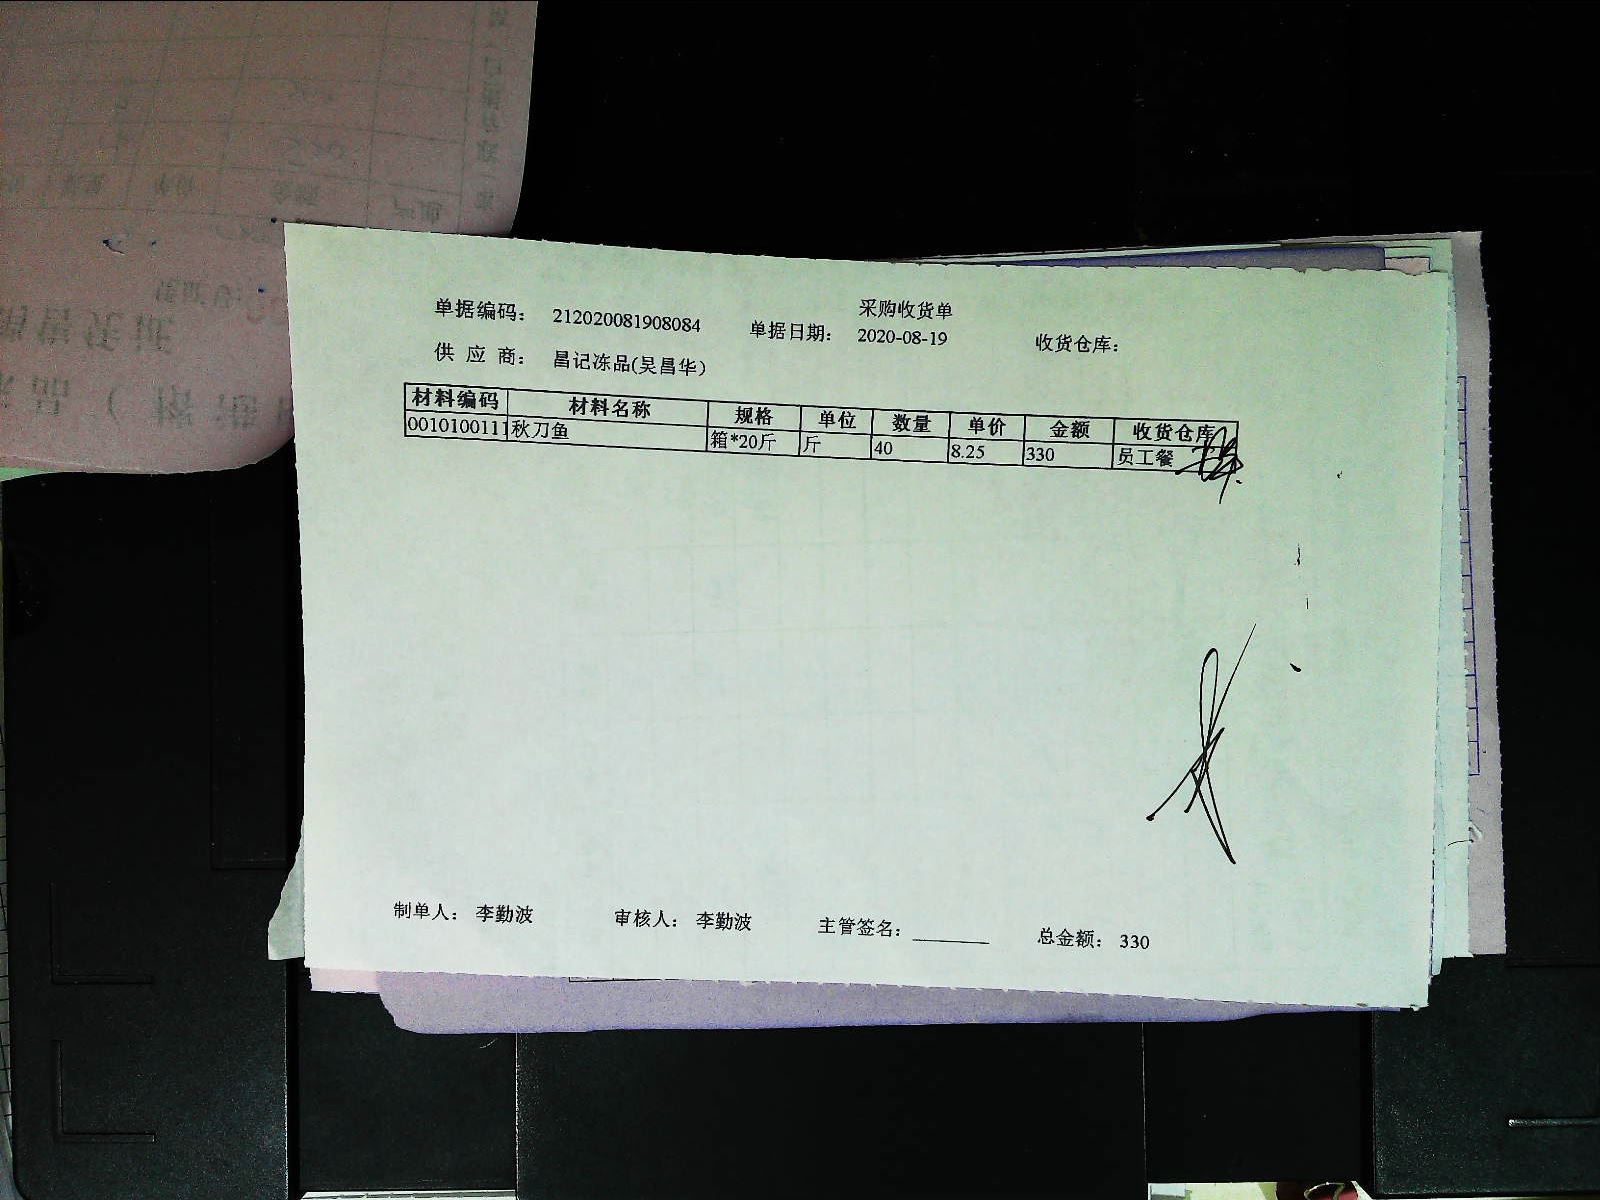 采购收货单
单据编码： 212020081908084 单据日期： 2020-08-19 收货仓库：
供 应 商： 昌记冻品(吴昌华)
材料编码 材料名称 规格 单位 数量 单价 金额 收货仓库
0010100111 秋刀鱼 箱*20斤 斤 40 8.25 330 员工餐
制单人： 李勤波 审核人： 李勤波 主管签名： 总金额： 330